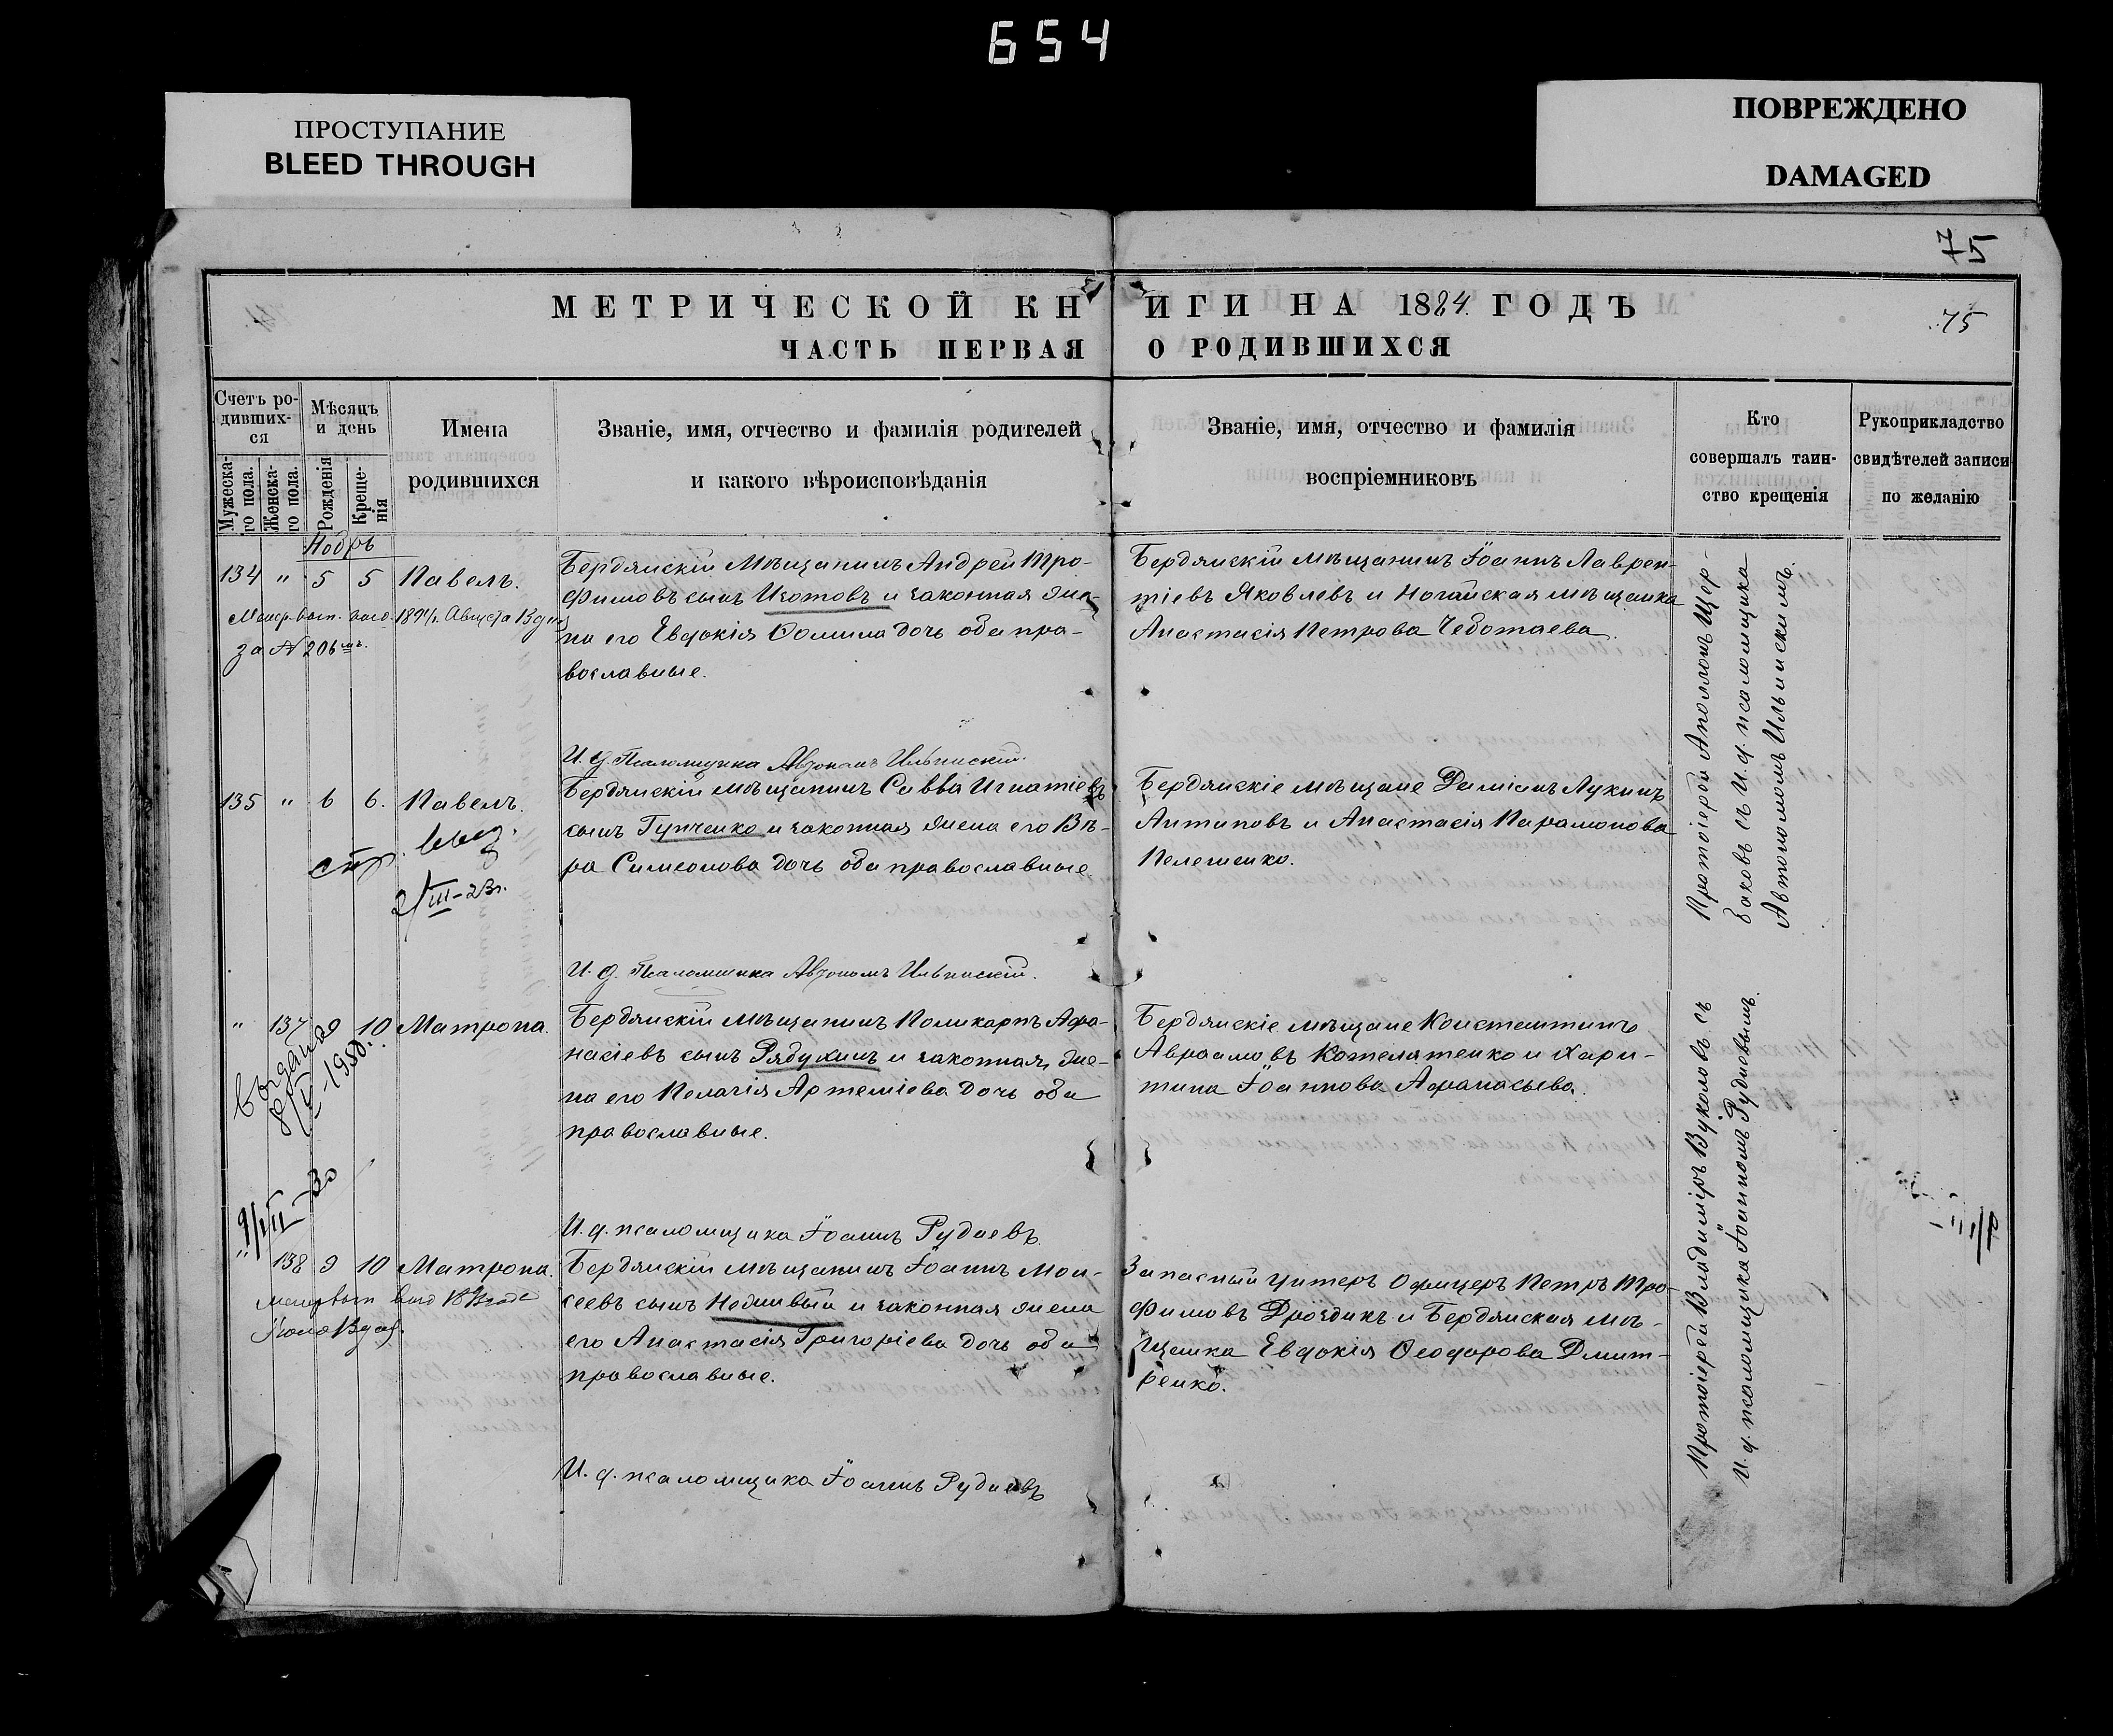 654
ПРОСТУПАНИЕ
BLEED THROUGH
ПОВРЕЖДЕНО
DAMAGED
75
МЕТРИЧЕСКОЙ КНИГИ НА 1884. ГОДЪ
75
ЧАСТЬ ПЕРВАЯ О РОДИВШИХСЯ
Счетъ ро-
дивших-
ся
Мужеска-
го пола.
Женска-
го пола.
Мѣсяцъ
и день
Рожденія
Креще-
нія
Имена
родившихся
Званіе, имя, отчество и фамилія родителей
и какого вѣроисповѣданія
Званіе, имя, отчество и фамилія
воспріемниковъ
Кто
совершалъ таин-
ство крещенія
Рукоприкладство
свидѣтелей записи
по желанію
Ноябрь
134 " 5 5 Павелъ.
Бердянскій Мѣщанинъ Андрей Тро-
фимовъ сынъ Изотовъ и законная же-
на его Евдокія Ѳомина дочь оба пра-
вославные.
Августа
за № 206
Бердянскій мѣщанинъ Іоаннъ Лаврен-
тіевъ Яковлевъ и Ногайская мѣщанка
Анастасія Петрова Чеботаева.
Протоіерей Аполлонъ Щер-
баковъ съ И. д. псаломщика
Автономомъ Ильинскимъ.
И. д. Псаломщика Автономъ Ильинскій.
135 " 6 6. Павелъ.
2/III-23г.
Бердянскій мѣщанинъ Савва Игнатіевъ
сынъ Гупченко и законная жена его Вѣ-
ра Симеонова дочь оба православные
Бердянскіе мѣщане Даміанъ Лукинъ
Антиповъ и Анастасія Парамонова
Пелешенко.
И. д. Псаломщика Автономъ Ильинскій.
" 137 9 10 Матрона.
Бердянскій мѣщанинъ Поликарпъ Афа-
насіевъ сынъ Рябухинъ и законная же-
на его Пелагія Артеміева дочь оба
православные.
Бердянскіе мѣщане Константинъ
Авраамовъ Котеляпенко и Хари-
тина Іоаннова Афанасьева.
Протоіерей Владиміръ Вуколовъ съ
И. д. псаломщика Іоанномъ Рудневымъ.
И. д. псаломщика Іоаннъ Рудневъ
" 138 9 10 Матрона.
Бердянскій мѣщанинъ Іоаннъ Мои-
сеевъ сынъ Недшивый и законная жена
его Анастасія Григоріева дочь оба
православные.
Запасный Унтеръ Офицеръ Петръ Тро-
фимовъ Дроздикъ и Бердянская мѣ-
щанка Евдокія Ѳеодорова Дмит-
ренко.
И. д. псаломщика Іоаннъ Рудневъ